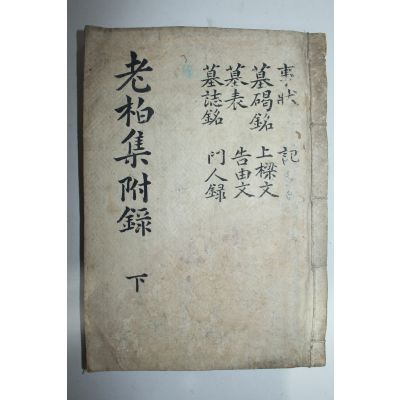 老柏集附錄 下
事狀 記
墓碣銘 上樑文
墓表 告由文
墓誌銘 門人録